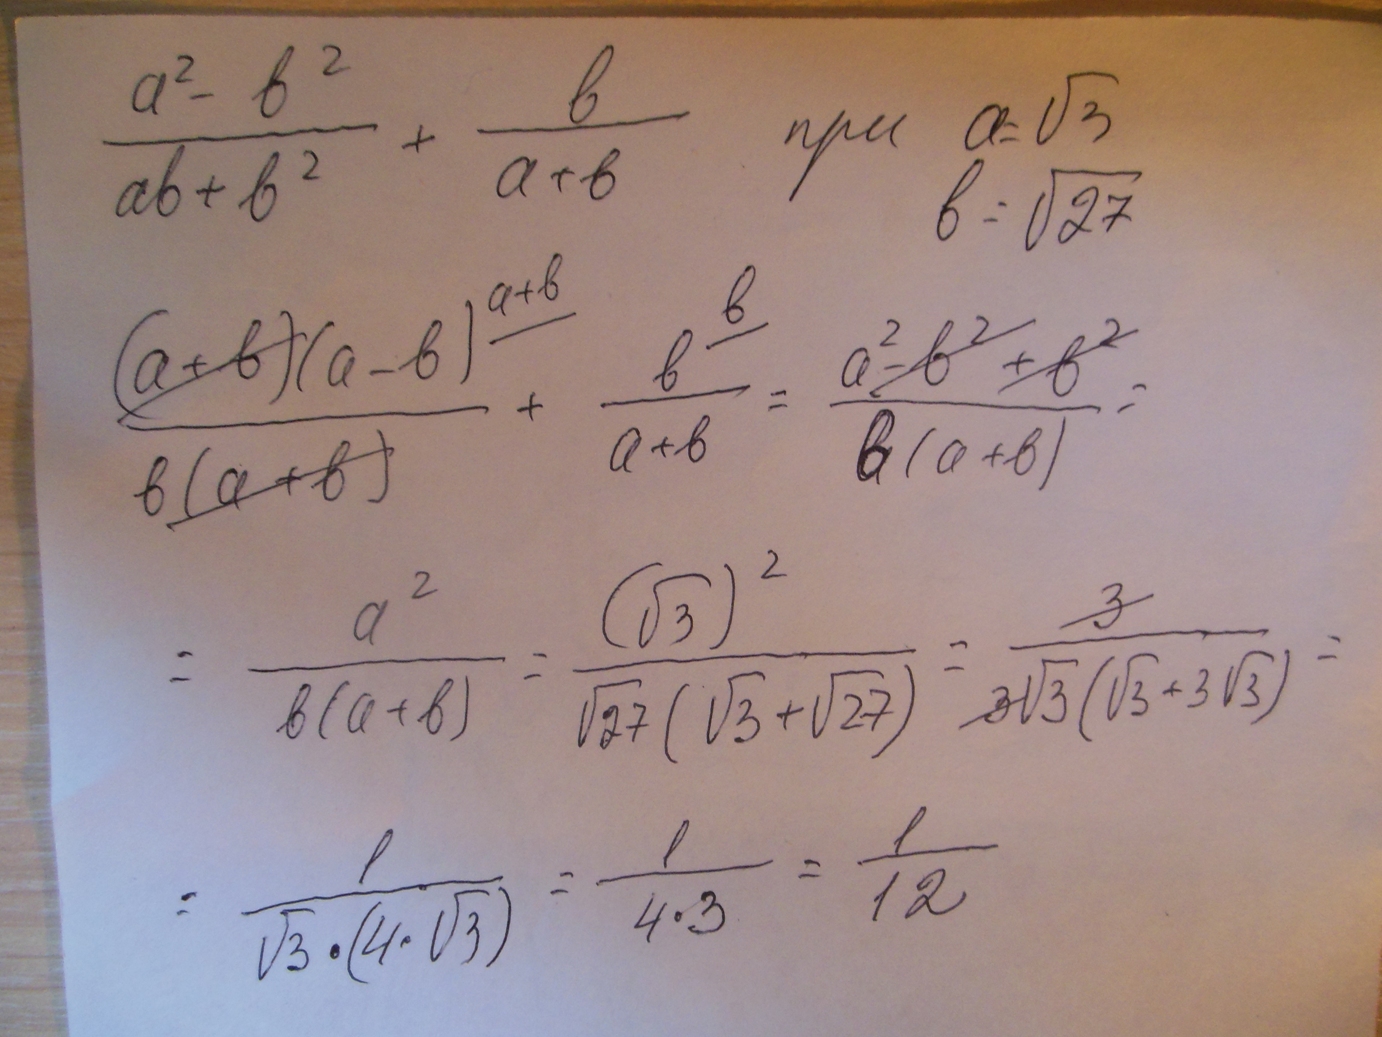 (a² - b²)/(ab + b²) + b/(a + b) при a = √3
b = √27
((a + b)(a - b)^(a + b))/(b(a + b)) + b^b/(a + b) = (a² - b² + b²)/(b(a + b)) =
= a²/(b(a + b)) = (√3)²/(√27(√3 + √27)) = 3/(3√3(√3 + 3√3)) =
= 1/(√3 · (4 · √3)) = 1/(4 · 3) = 1/12